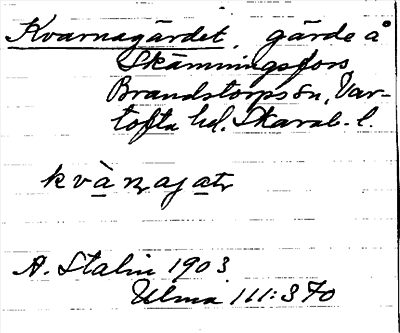 Kvarnagärdet, gärde å
Skämningsfors
Brandstorps sn, Var-
tofta hd. Skarab. l.
kvà𝑟najat
A. Stalin 1903
Ulma 111:370